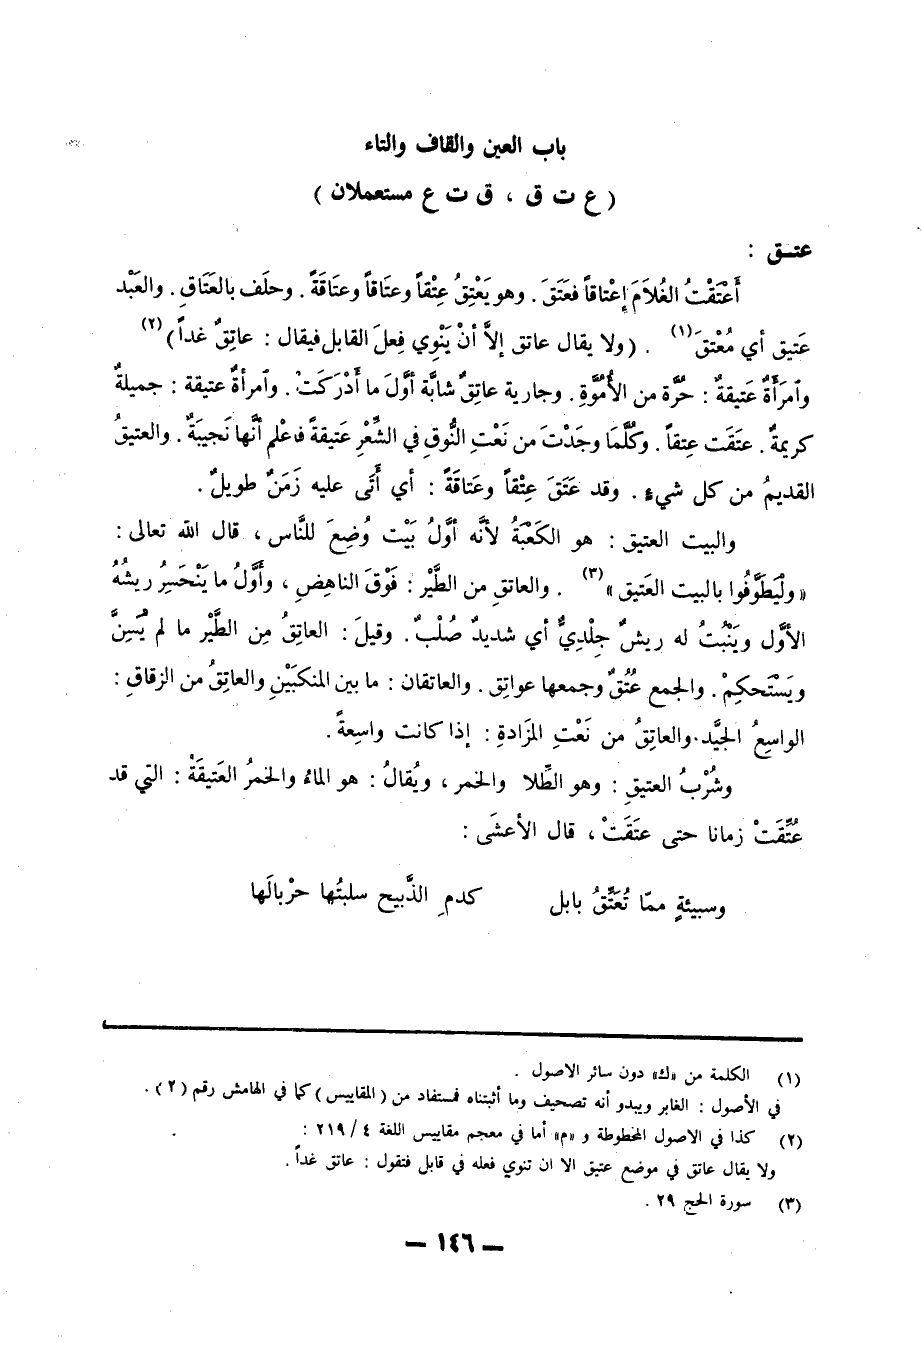 باب العين والقاف والتاء
( ع ت ق ، ق ت ع مستعملان )
عتـق :
أَعْتَقْتُ الغُلاَمَ إعْتاقاً فعَتَقَ . وهو يَعْتِقُ عِتْقاً وعتاقاً وعتاقَةً . وحلَف بالعَتَاقِ . والعَبْد
عَتيق أي مُعْتقَ (١) . (ولا يقال عاتق إلاَّ أنْ يَنْوِي فِعلَ القابل فيقال : عاتِقٌ غداً) (٢)
وٱمرَأَةٌ عَتيقةٌ : حُرَّة من الأُمُوَّةِ . وجارية عاتِقٌ شابَّة أوَّلَ ما أَدْرَكَتْ . وٱمرأةٌ عتيقة : جميلةٌ
كريمةٌ . عتَقَت عِتقاً . وكُلَّمَا وجَدْتَ من نَعْتِ النُّوق في الشِّعْرِ عَتيقةً فاعْلم أنَّها نَجيبَةٌ . والعتيقُ
القديمُ من كل شيءٍ . وقد عَتَقَ عِتْقاً وعَتاقَةً : أي أَتَى عليه زَمَنٌ طويلٌ .
والبيت العتيق : هو الكَعْبَةُ لأنَّه أوَّلُ بَيْت وُضِعَ للنَّاس ، قال الله تعالى :
«ولْيَطَوَّفُوا بالبيت العَتيق» (٣) . والعاتق من الطَّيْر : فَوْقَ الناهِضِ ، وأَوَّلُ ما يَنْحَسِرُ ريشُهُ
الأوَّل ويَنْبُتُ له ريشٌ جِلْدِيٌّ أي شديدٌ صُلْبٌ . وقيلَ : العاتِقُ مِن الطَّيْر ما لم يُسِنَّ
ويَسْتَحكِمْ . والجمع عُتُقٌ وجمعها عواتِق . والعاتقان : ما بين المنكبَيْنِ والعاتِقُ من الزقاق :
الواسِعُ الجيَّد . والعاتِقُ من نَعْتِ المزَادةِ : إذا كانت واسِعةً .
وشُرْبُ العتيقِ : وهو الطِّلا والخمر ، ويُقالُ : هو الماءُ والخمرُ العَتيقَةْ : التي قد
عُتِّقَتْ زمانا حتى عتَقَتْ ، قال الأعشَى :
وسبيئةٍ ممّا تُعَتِّقُ بابل كدمِ الذَّبيح سلبتُها حرْيالَها
(١) الكلمة من «ك» دون سائر الاصول .
في الأصول : الغابر ويبدو أنه تصحيف وما أثبتناه فمستفاد من (المقاييس) كما في الهامش رقم (٢) .
(٢) كذا في الاصول المخطوطة و «م» أما في معجم مقاييس اللغة ٤ / ٢١٩ :
ولا يقال عاتق في موضع عتيق الا ان تنوي فعله في قابل فتقول : عاتق غداً .
(٣) سورة الحج ٢٩ .
— ١٤٦ —